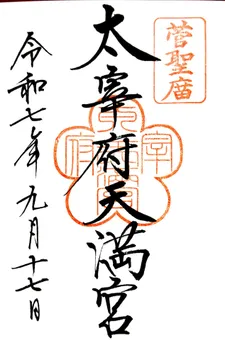 菅聖廟
太宰府天満宮
令和七年九月十七日